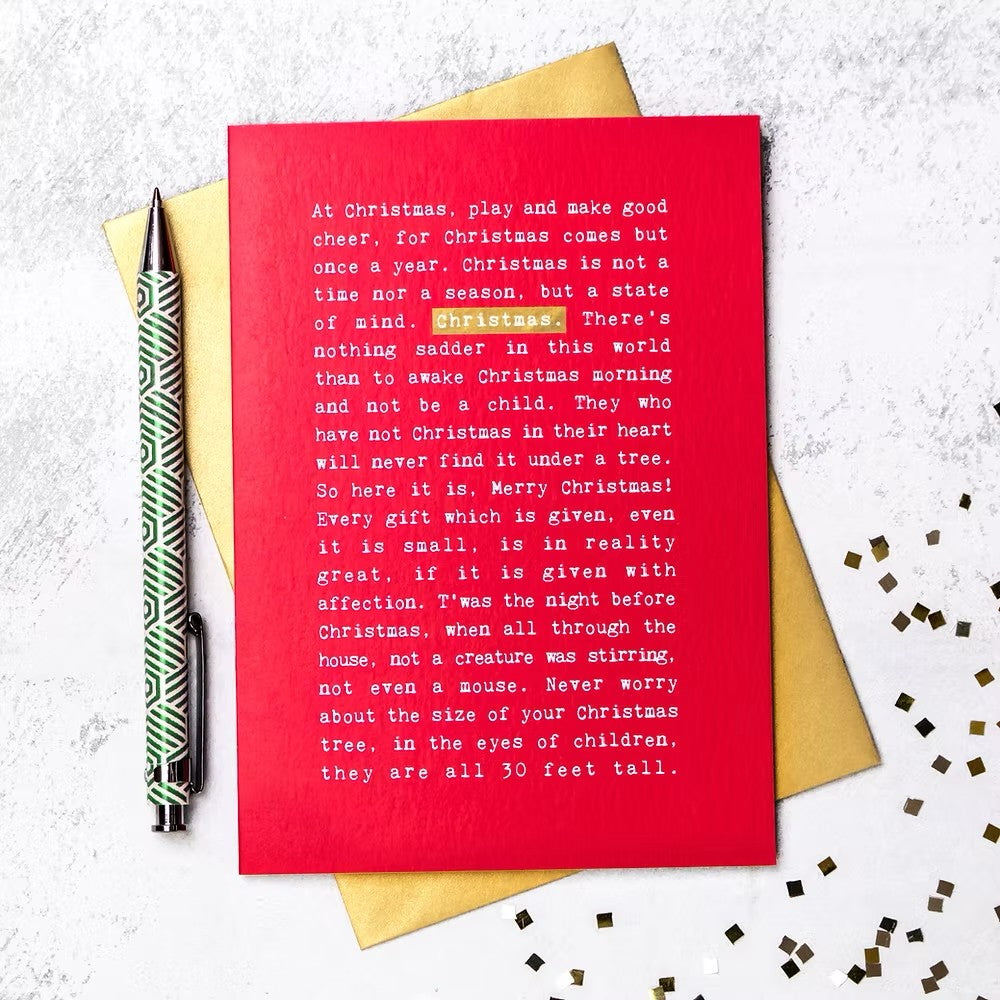 At Christmas, play and make good
cheer, for Christmas comes but
once a year. Christmas is not a
time nor a season, but a state
of mind. Christmas. There's
nothing sadder in this world
than to awake Christmas morning
and not be a child. They who
have not Christmas in their heart
will never find it under a tree.
So here it is, Merry Christmas!
Every gift which is given, even
it is small, is in reality
great, if it is given with
affection. T'was the night before
Christmas, when all through the
house, not a creature was stirring,
not even a mouse. Never worry
about the size of your Christmas
tree, in the eyes of children,
they are all 30 feet tall.